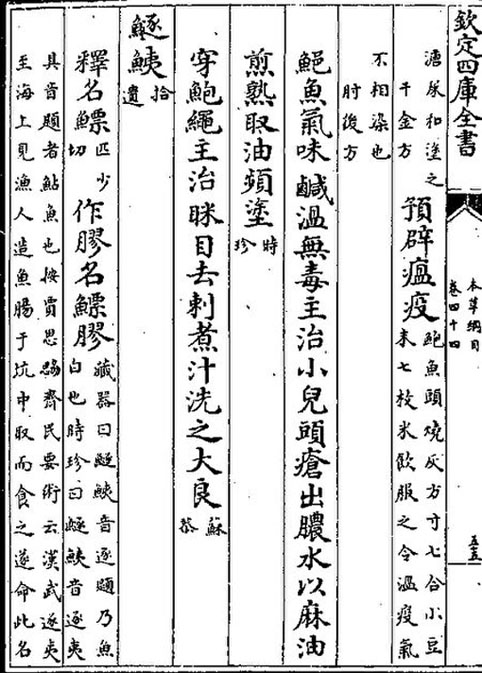 欽定四庫全書
本草綱目
卷四十四
五五
溏尿和塗之
千金方
預辟瘟疫
鮑魚頭燒灰方寸七合小豆
末七枚米飲服之令瘟疫氣
不相染也
肘後方
鮑魚氣味鹹溫無毒主治小兒頭瘡出膿水以麻油
煎熟取油頻塗
時珍
穿鮑繩主治眯目去刺煮汁洗之大良
蘇恭
鱁鮧
拾遺
釋名鰾
匹少切
作膠名鰾膠
藏器曰鱁鮧音逐題乃魚
白也時珍曰鱁鮧音逐夷
其音題者鮎魚也按賈思勰齊民要術云漢武逐夷
至海上見漁人造魚腸于坑中取而食之遂命此名